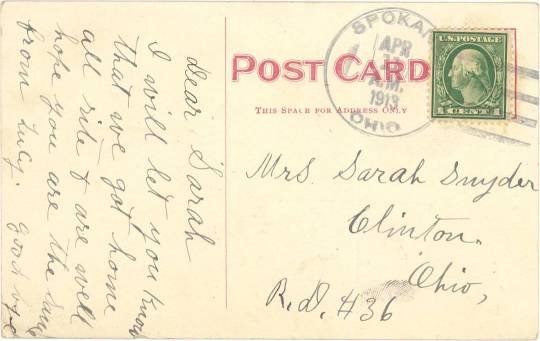 dear Sarah
I will let you know
that we got home
all rite & are well
hope you are the same
from Lucy. Good by
POST CARD
THIS SPACE FOR ADDRESS ONLY
SPOKA
APR
M.
1913
OHIO
U.S. POSTAGE
1 CENT 1
Mrs Sarah Snyder
Clinton.
Ohio,
R.D. #36